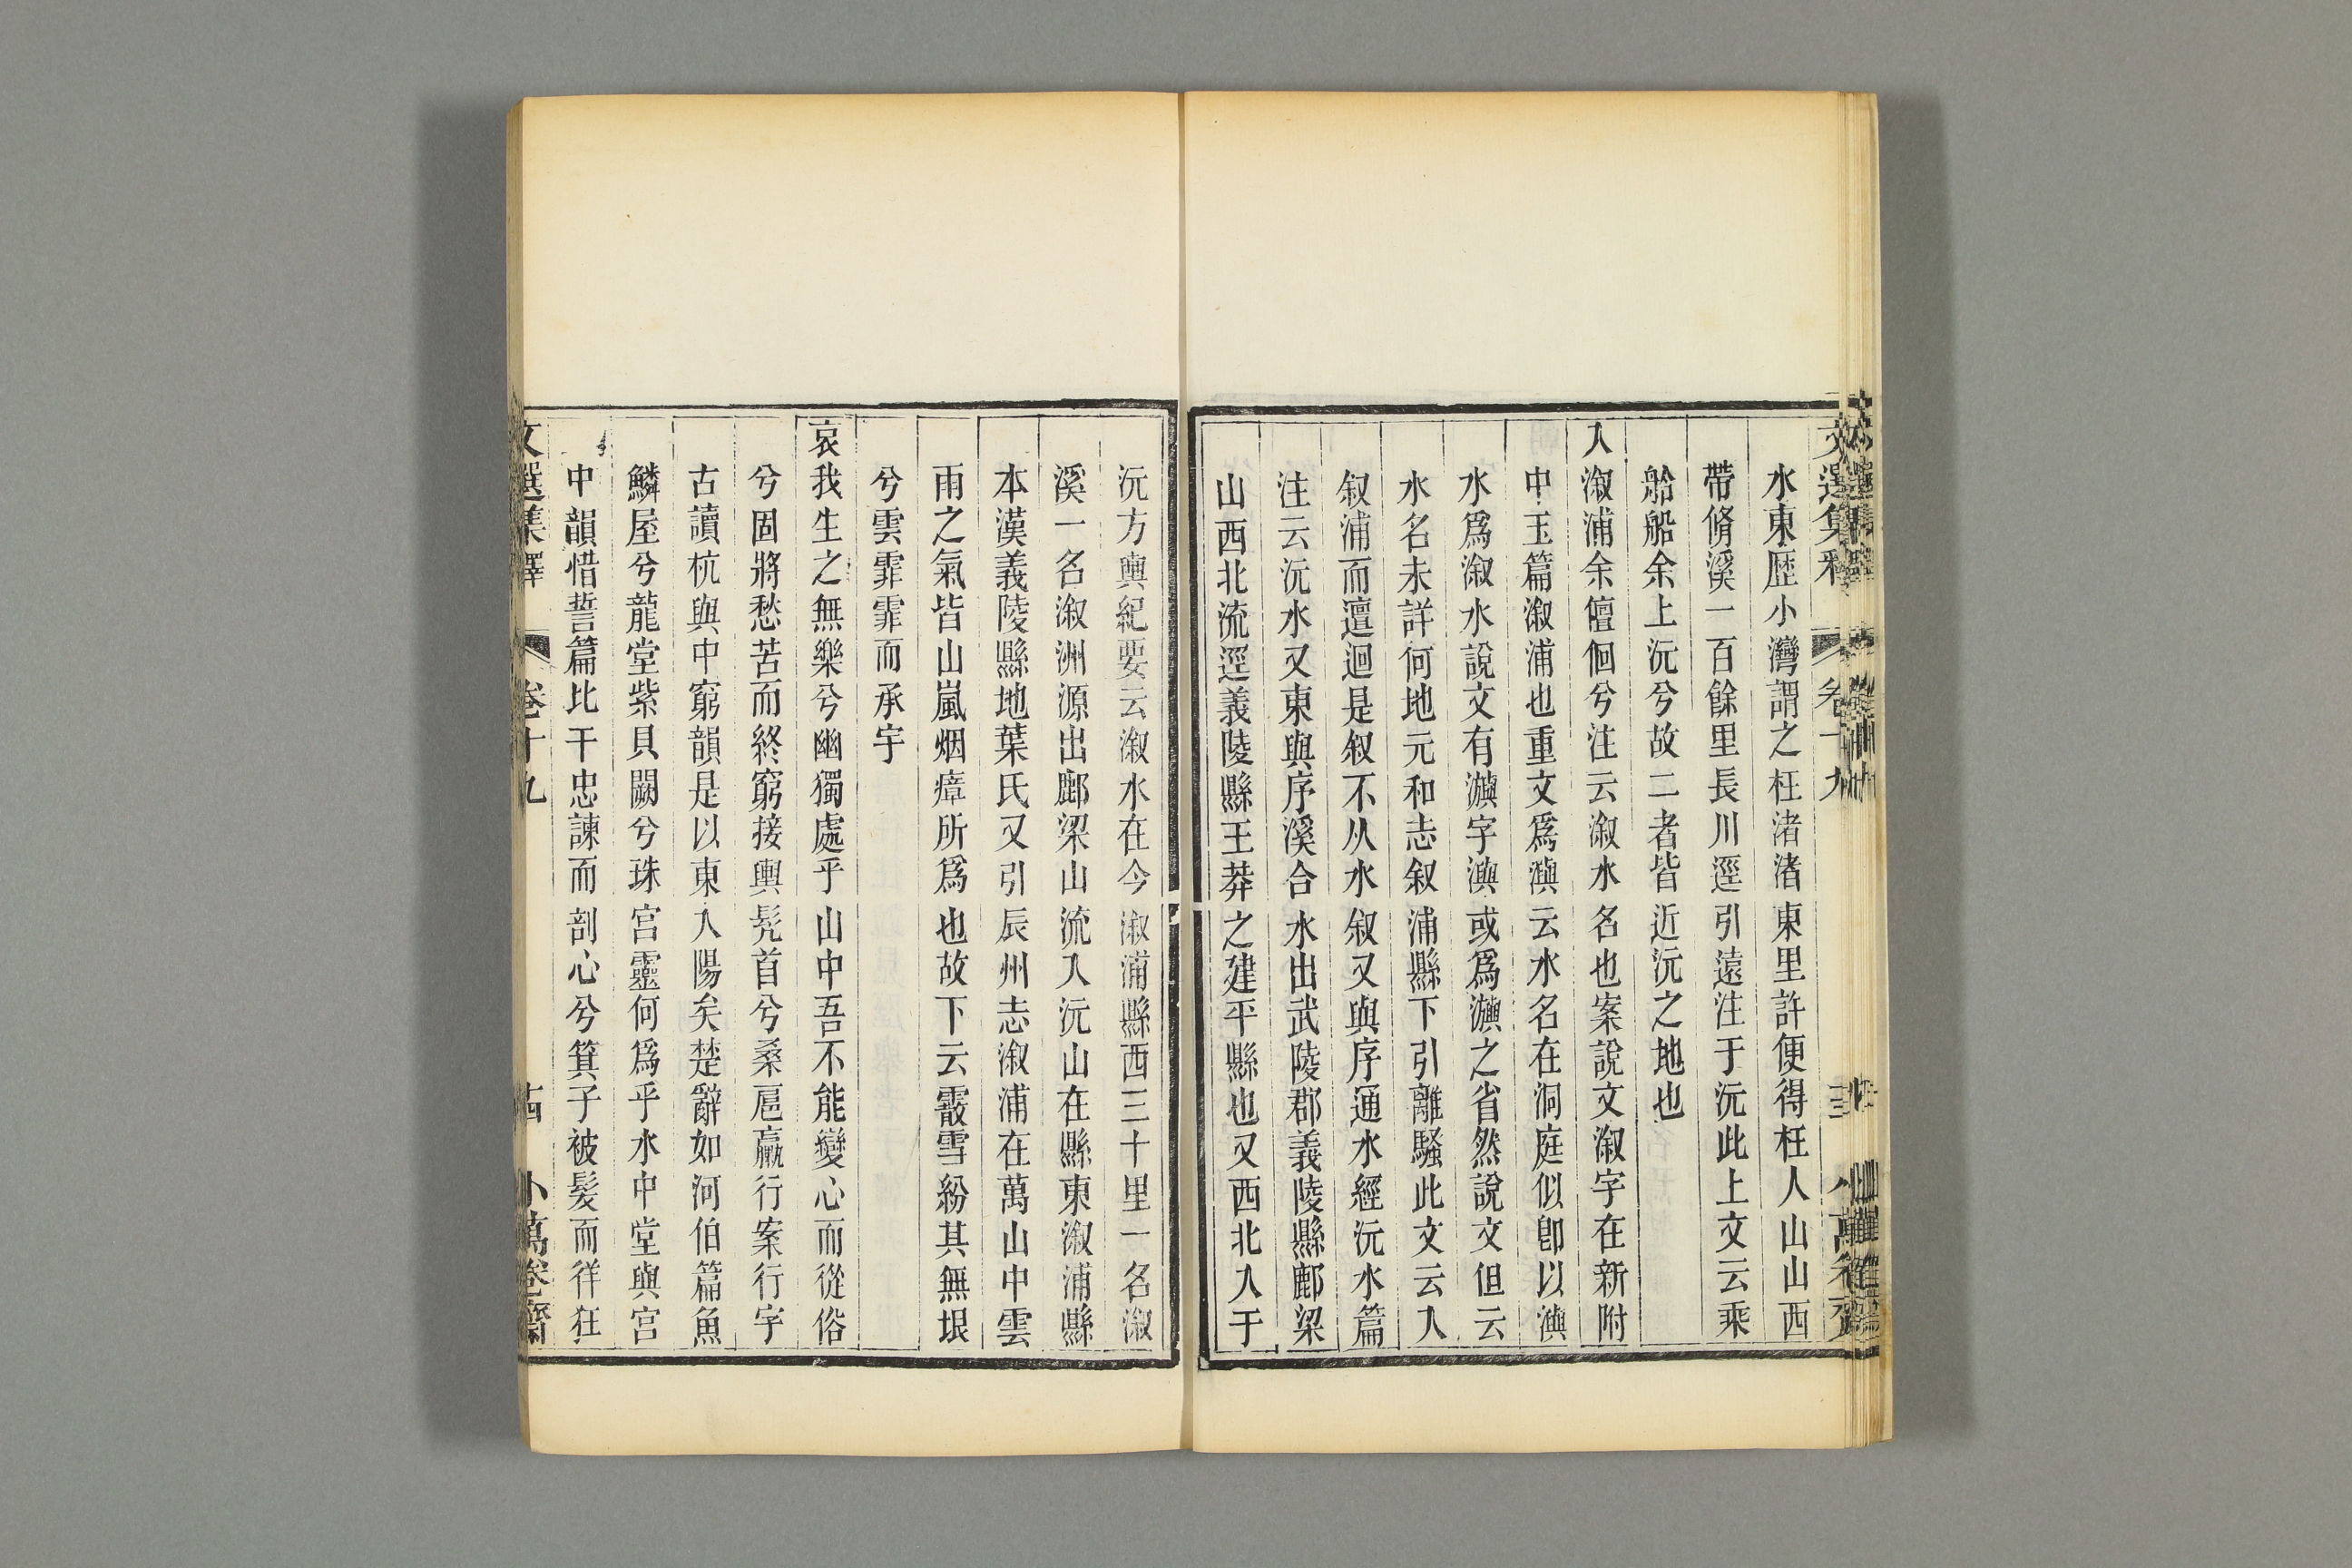 水東歷小灣謂之枉渚渚東里許便得枉人山山西
帶脩溪一百餘里長川逕引遠注于沅此上文云乘
舲船余上沅兮故二者皆近沅之地也
入漵浦余儃佪兮注云漵水名也案說文漵字在新附
中玉篇漵浦也重文爲澦云水名在洞庭似卽以澦
水爲漵水說文有瀩字澦或爲瀩之省然說文但云
水名未詳何地元和志叙浦縣下引離騷此文云入
叙浦而邅迴是叙不从水叙又與序通水經沅水篇
注云沅水又東與序溪合水出武陵郡義陵縣鄜梁
山西北流逕義陵縣王莽之建平縣也又西北入于
沅方輿紀要云漵水在今漵浦縣西三十里一名漵
溪一名漵洲源出鄜梁山流入沅山在縣東漵浦縣
本漢義陵縣地葉氏又引辰州志漵浦在萬山中雲
雨之氣皆山嵐烟瘴所爲也故下云霰雪紛其無垠
兮雲霏霏而承宇
哀我生之無樂兮幽獨處乎山中吾不能變心而從俗
兮固將愁苦而終窮接輿髠首兮桑扈臝行案行字
古讀杭與中窮韻是以東入陽矣楚辭如河伯篇魚
鱗屋兮龍堂紫貝闕兮珠宮靈何爲乎水中堂與宮
中韻惜誓篇比干忠諫而剖心兮箕子被髮而徉狂
文選集釋 卷十九 古 小萬卷齋